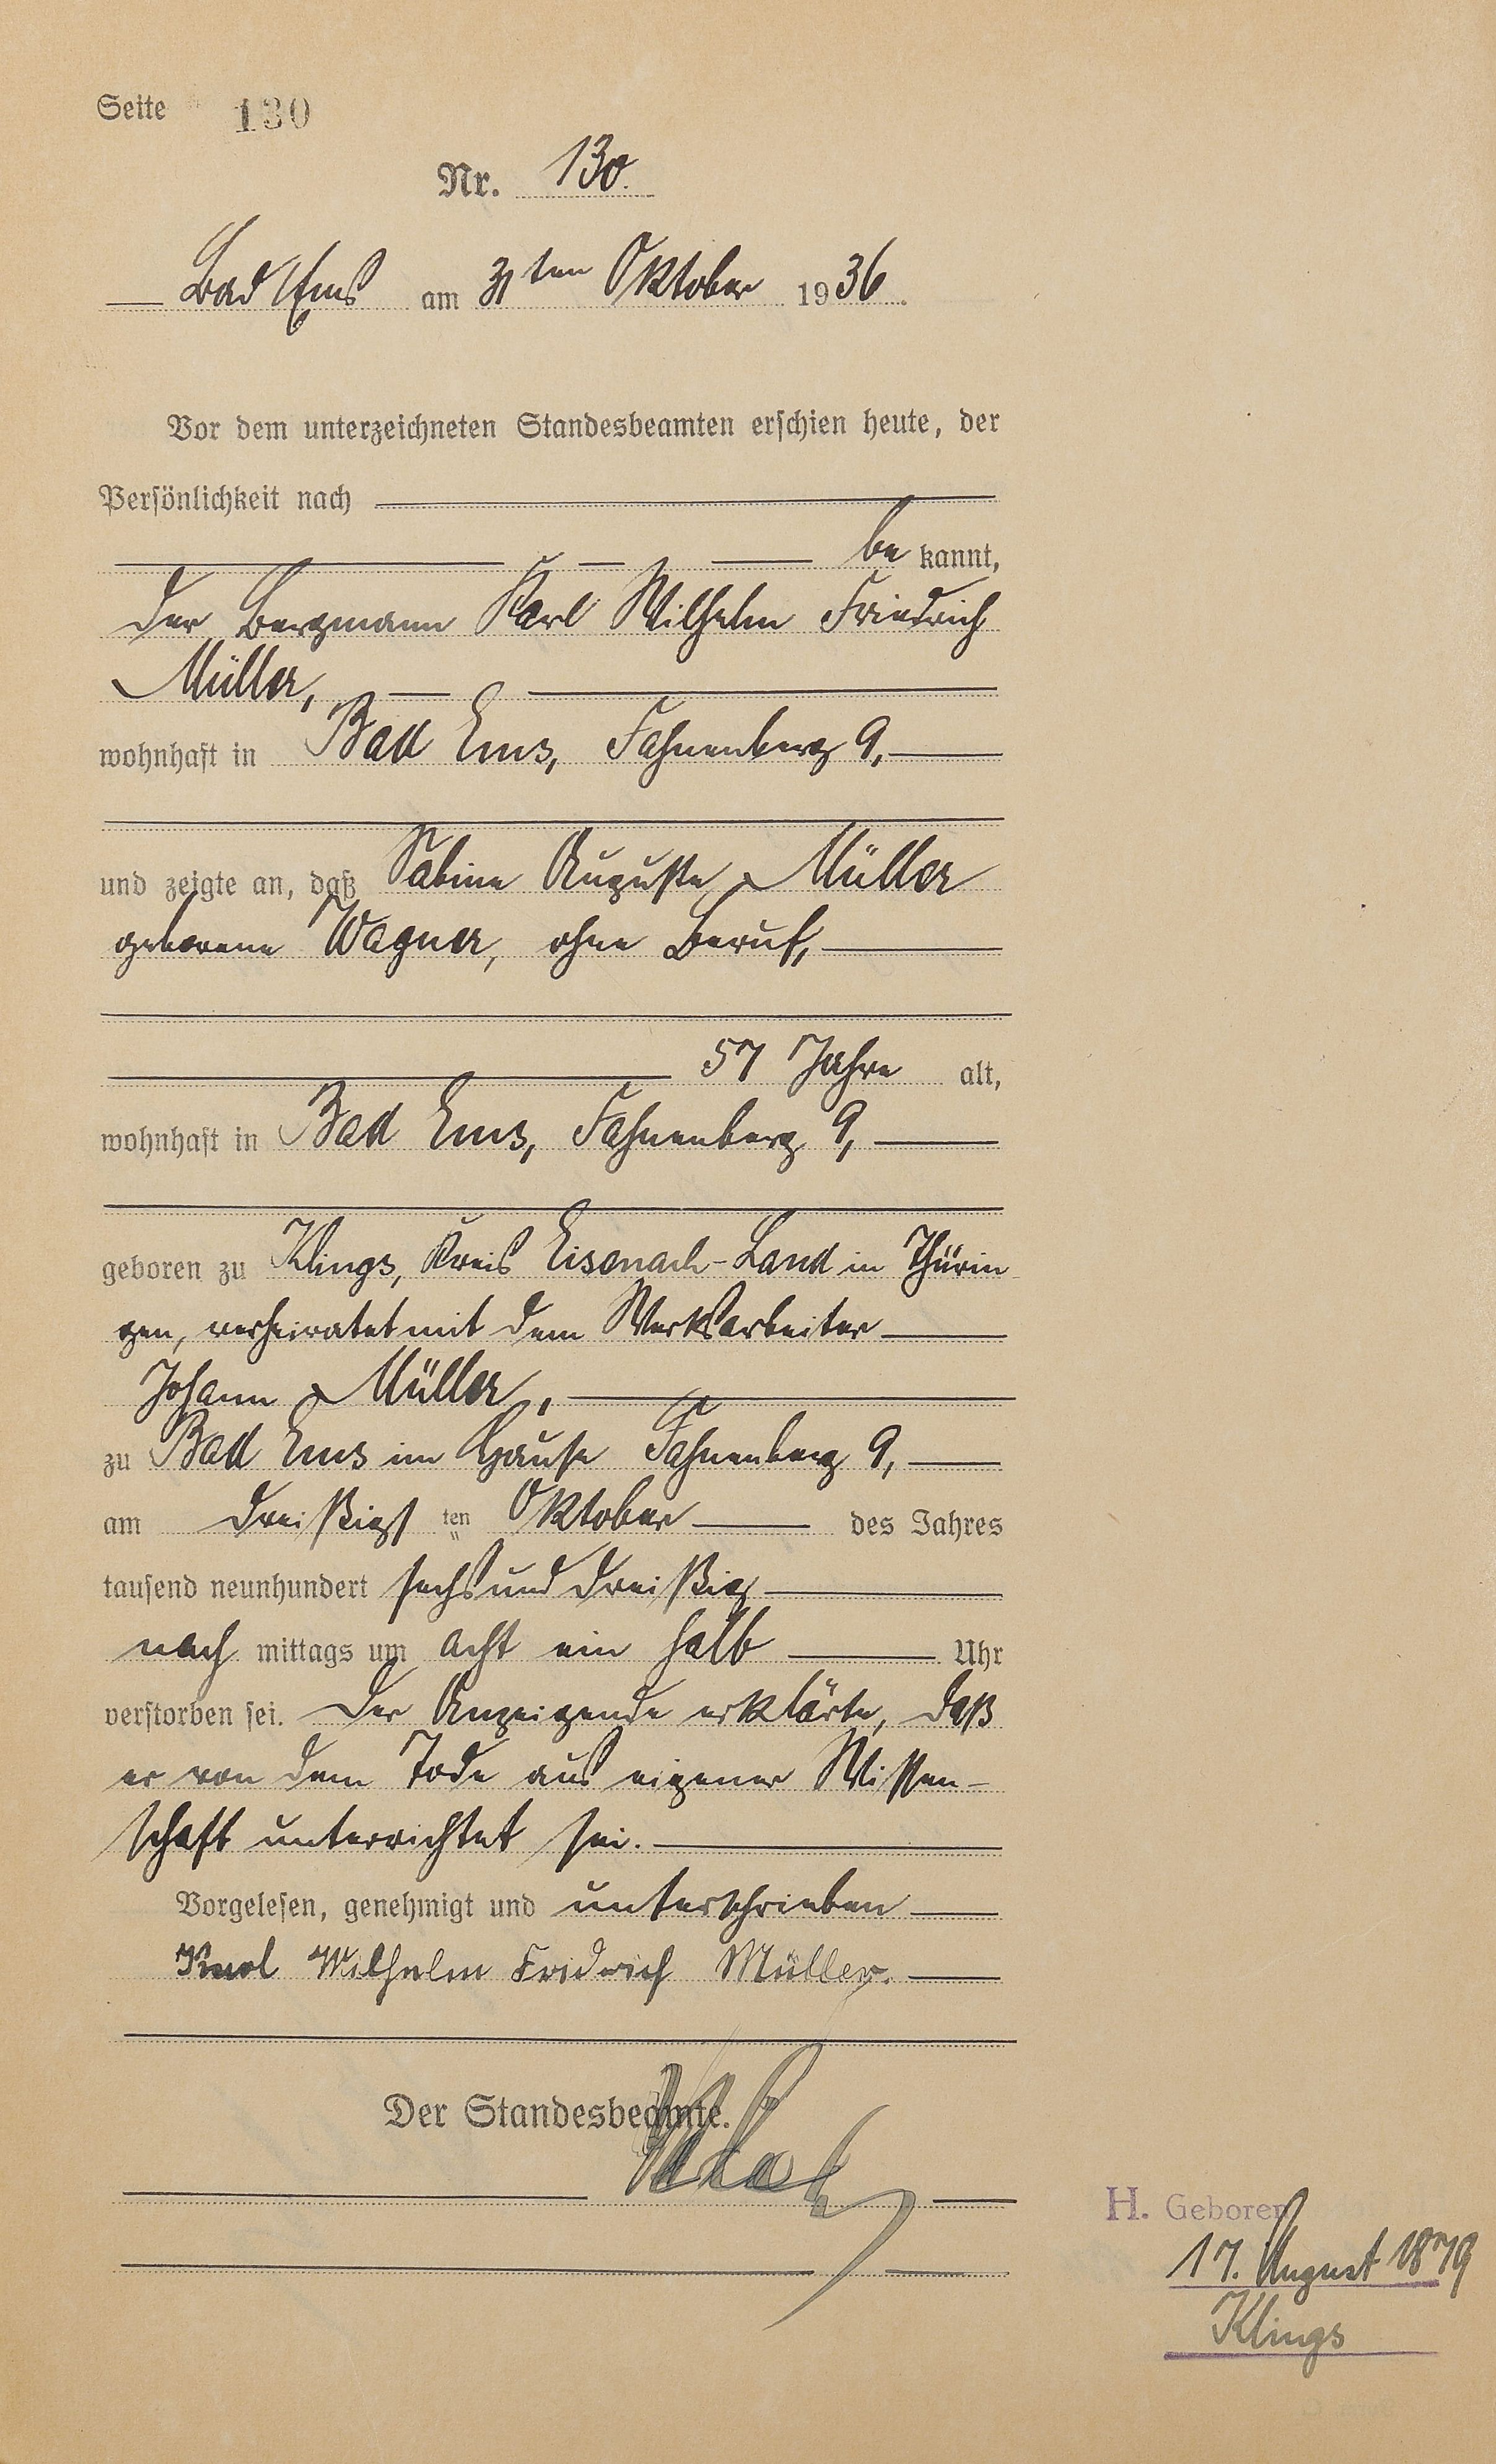 Seite 130
Nr. 130.
Bad Ems am 31ten Oktober 1936.
Vor dem unterzeichneten Standesbeamten erschien heute, der
Persönlichkeit nach
be kannt,
der Bergmann Karl Wilhelm Friedrich
Müller,
wohnhaft in Bad Ems, Fahnenberg 9,
und zeigte an, daß Sabine Auguste Müller
geborene Wagner, ohne Beruf,
57 Jahre alt,
wohnhaft in Bad Ems, Fahnenberg 9,
geboren zu Klings, Kreis Eisenach-Land in Thürin
gen, verheiratet mit dem Werksarbeiter
Johann Müller,
zu Bad Ems im Hause Fahnenberg 9,
am dreißigst ten Oktober des Jahres
tausend neunhundert sechs und dreißig
nach mittags um acht ein halb Uhr
verstorben sei. Der Anzeigende erklärte, daß
er von dem Tode aus eigener Wissen-
schaft unterrichtet sei.
Vorgelesen, genehmigt und unterschrieben
Karl Wilhelm Fridrich Müller.
Der Standesbeamte.
H. Geboren
17. August 1879
Klings